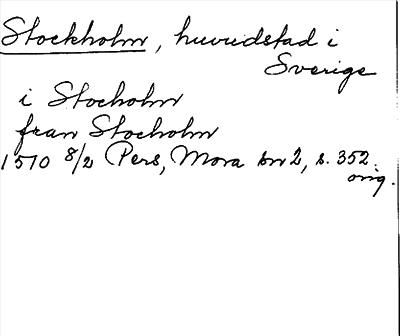 Stockholm, huvudstad i
Sverige
i Stocholm
fran Stocholm
1570 8/2 Pers, Mora bn 2, s. 352.
orig.